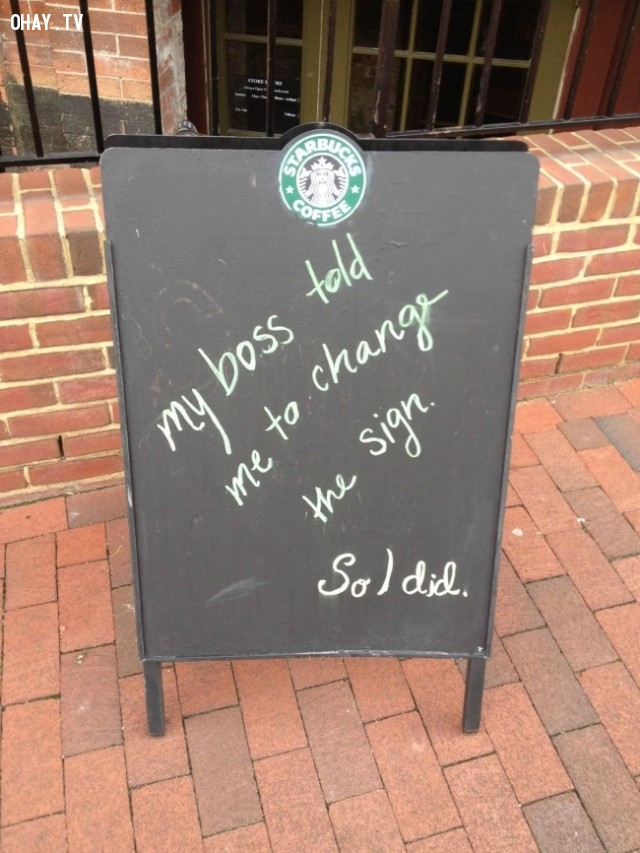 OHAY.TV
STARBUCKS
COFFEE
my boss told
me to change
the sign.
So I did.